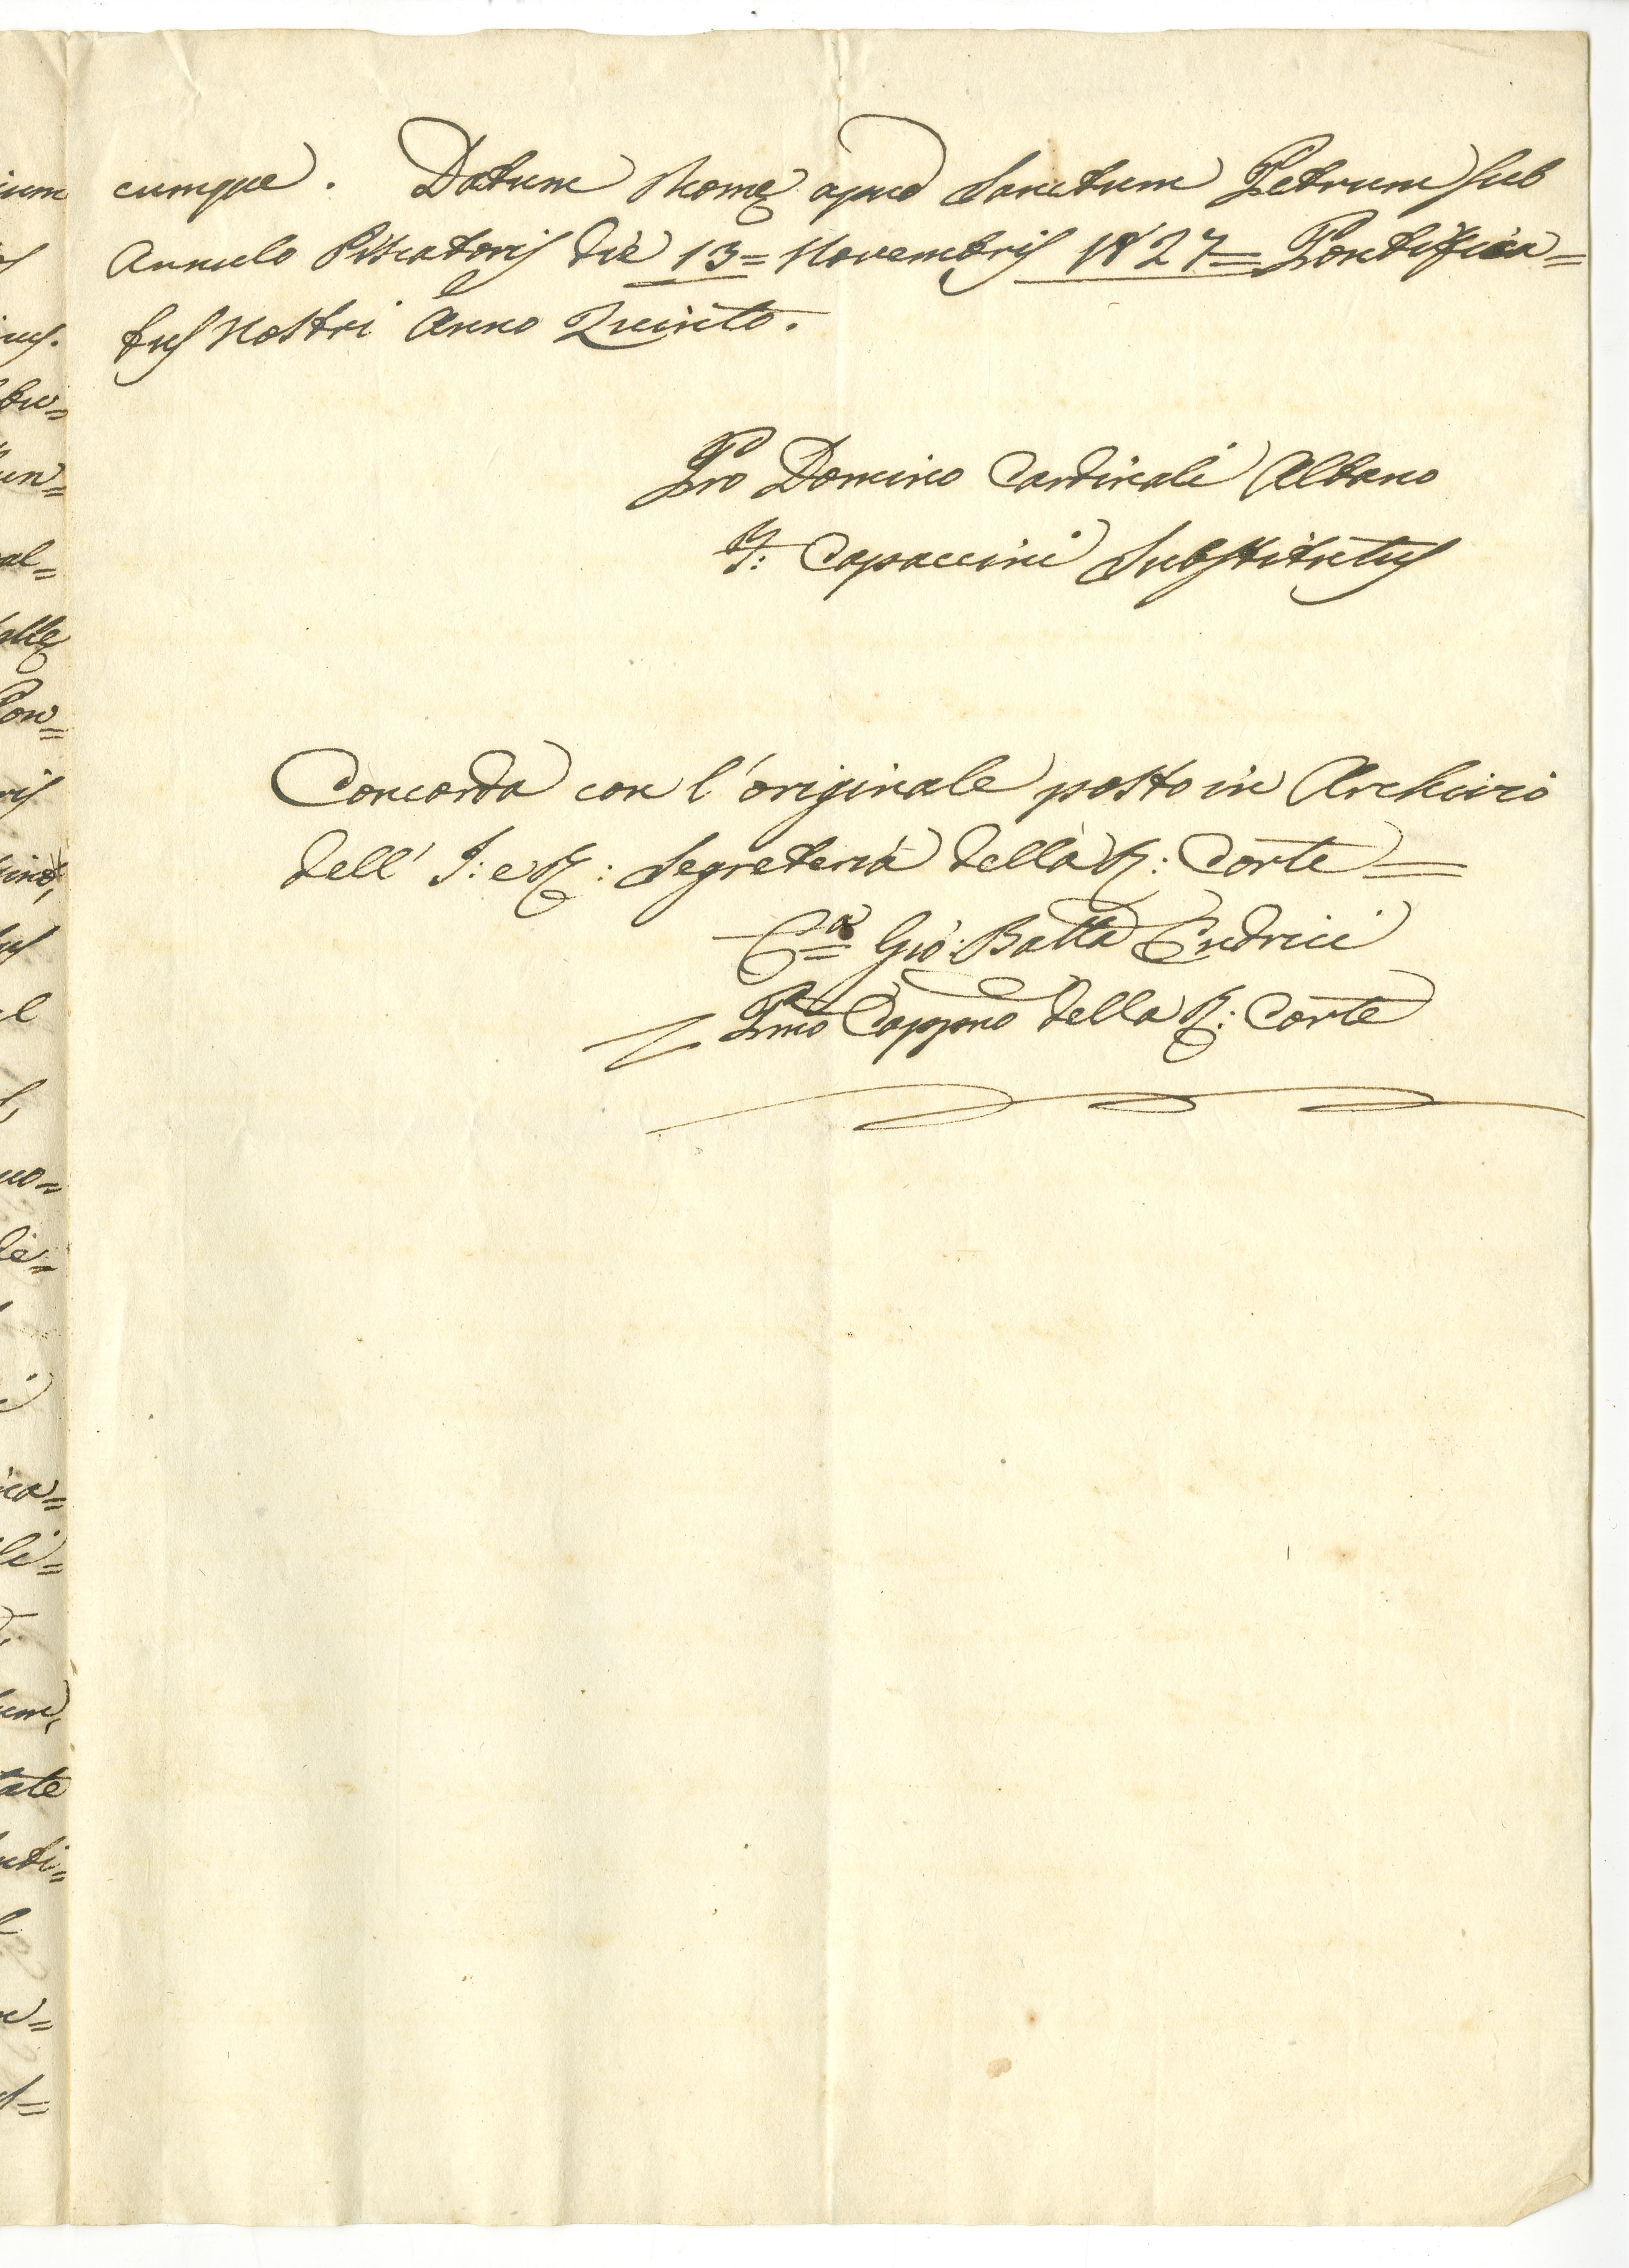 cumque. Datum Romę apud Sanctum Petrum sub
Annulo Piscatoris die 13= Novembris 1827= Pontifica=
tus Nostri Anno Quinto.
Pro Domino Cardinali Albano
F: Capaccini Substitutus
Concorda con l'originale posto in Archivio
dell' I: e R: Segreteria della R: Corte=
Gio: Batta
Pmo Cappno della R: Corte
ium
bu=
un=
al=
Con=
uo=
de=
ica=
li=
tate
nti=